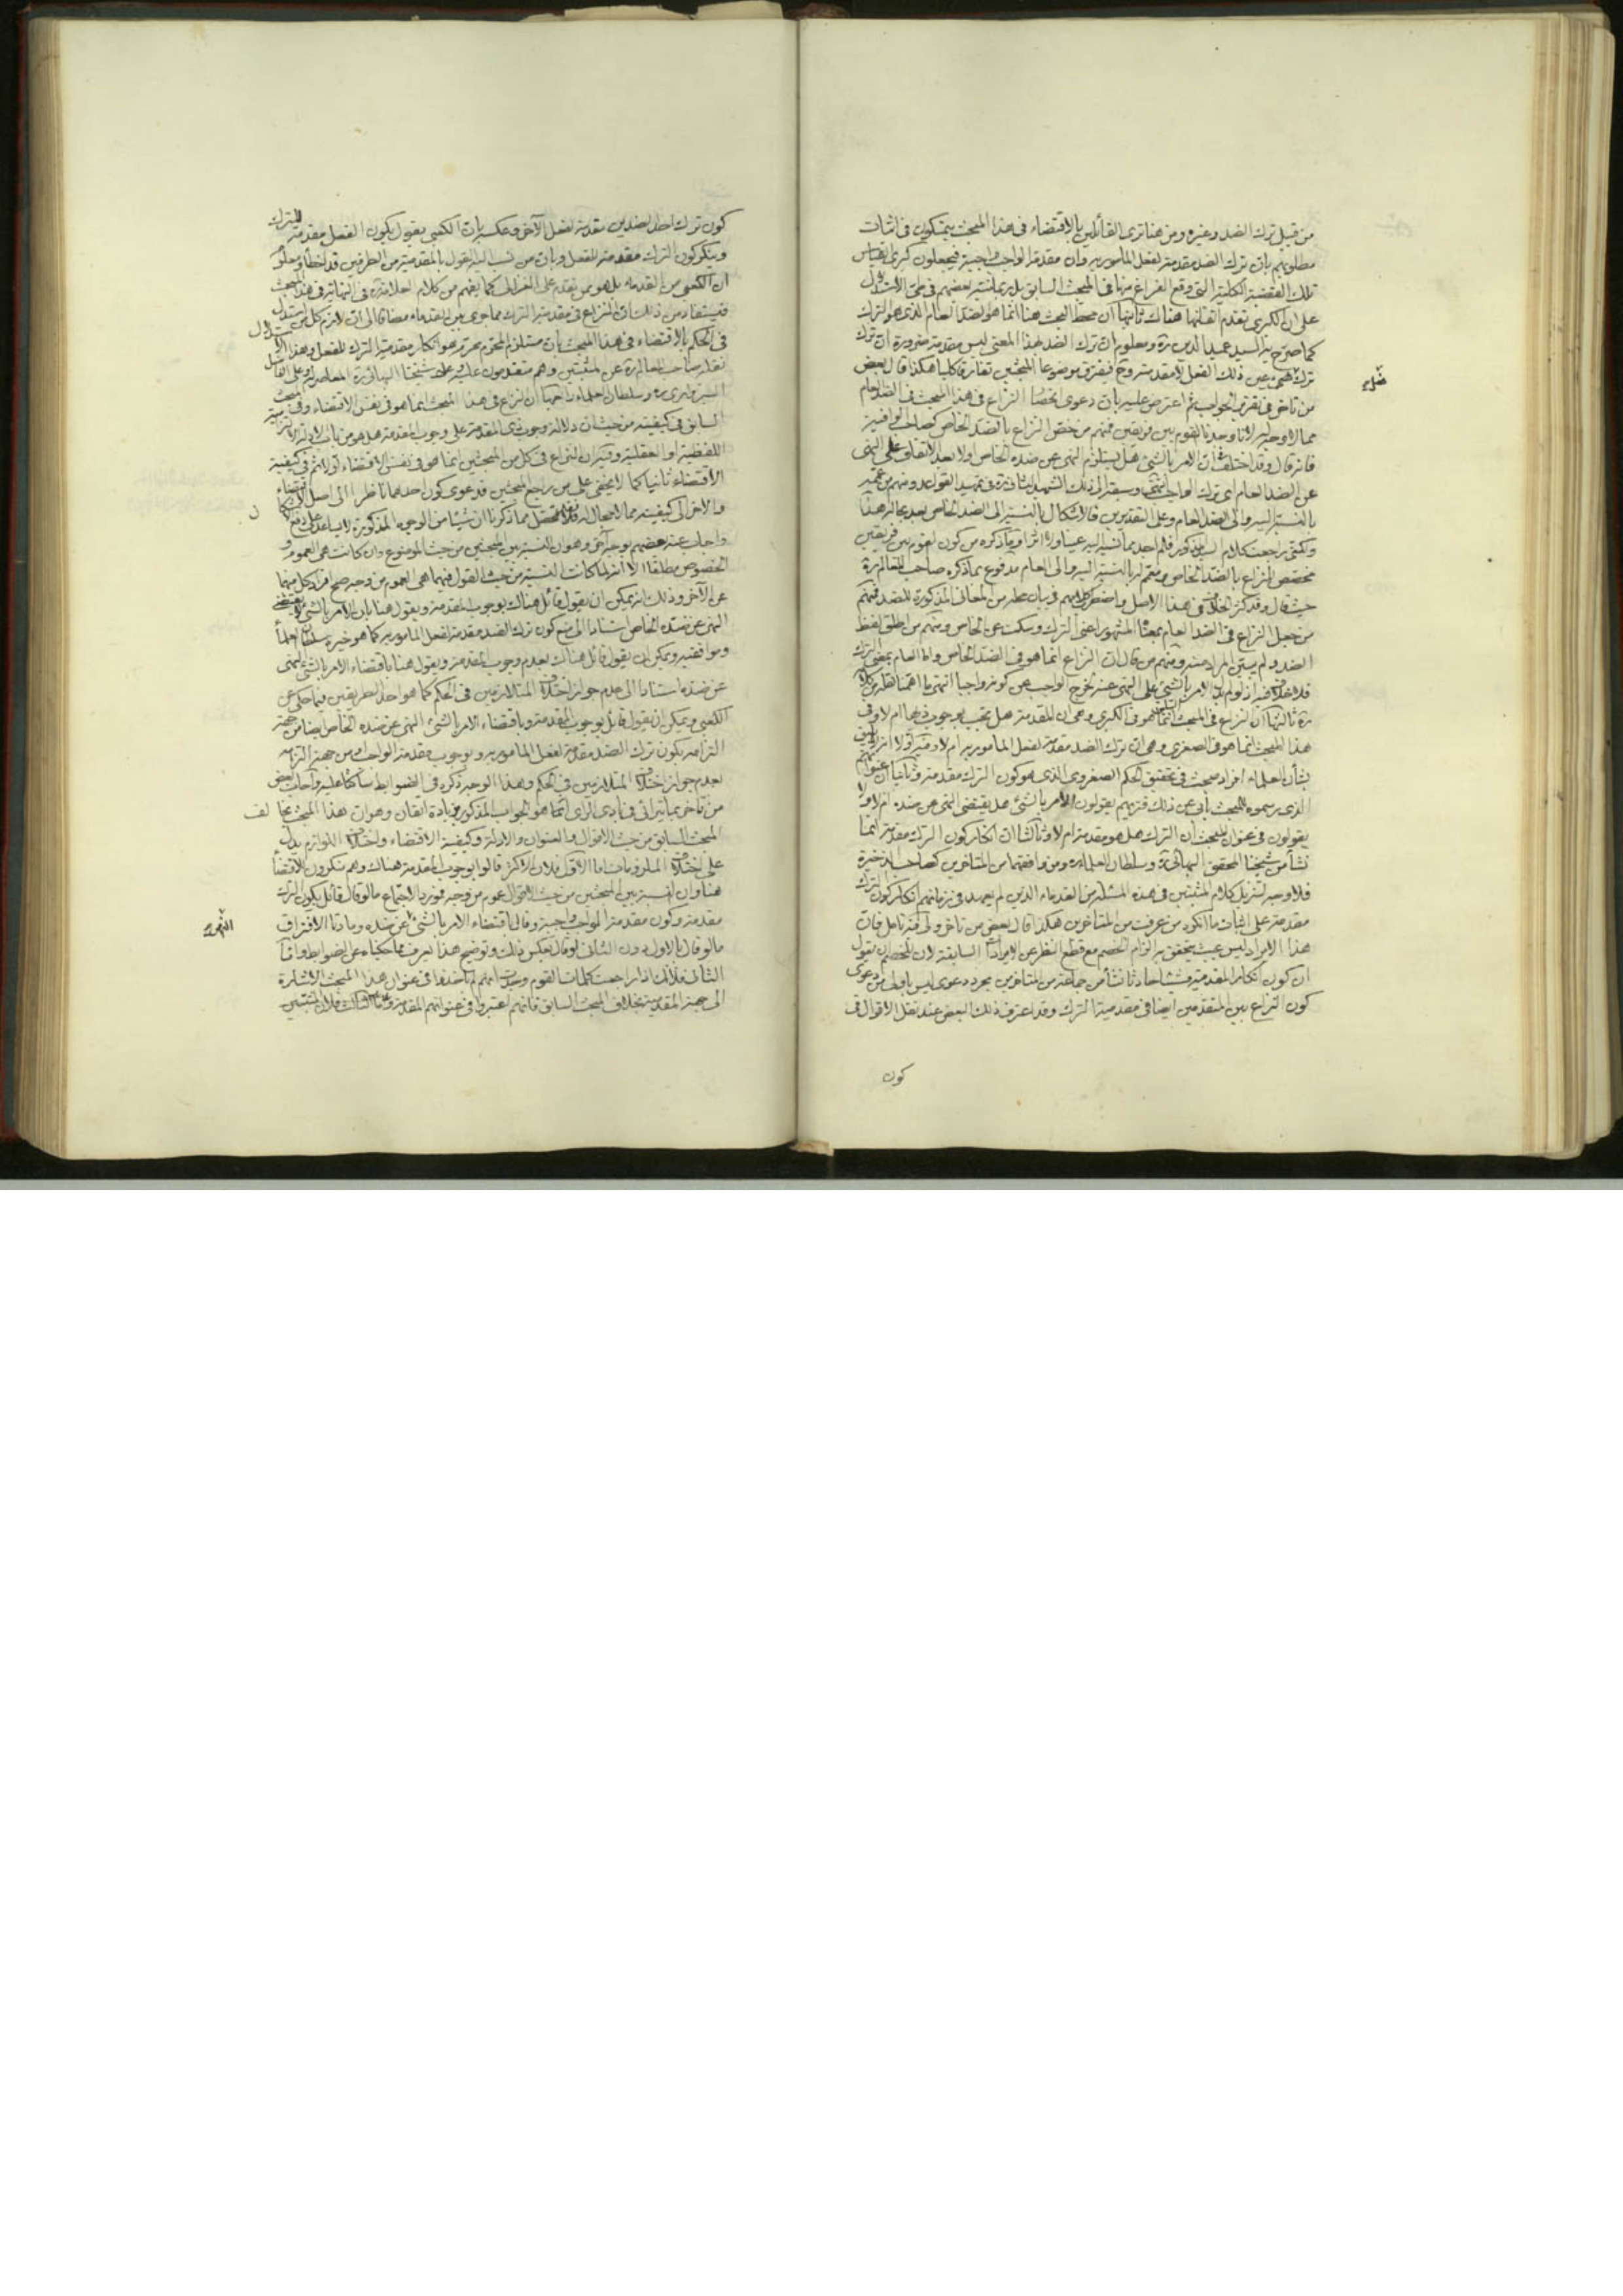 من قبيل ترك الضد وغيره ومن هنا ترى القائلين بالاقتضاء فى هذا المبحث يتمسكون فى اثبات
مطلوبهم بان ترك الضد مقدمة لفعل المأمور به وان مقدمة الواجب واجبة فيجعلون كبرى القياس
تلك القضية الكلية التى وقع الفراغ منها فى المبحث السابق بل ربما ينبه بعضهم فى طى الاستدلال
على ان الكبرى تقدم اتقانها هناك ثانيها ان محط البحث هنا انما هو الضد العام الذى هو الترك
كما صرح به السيد عميد الدين ره ومعلوم ان ترك الضد بهذا المعنى ليس مقدمة ضرورة ان ترك
ترك شىء عين ذلك الفعل لا مقدمته وح فيفترق موضوعا المبحثين تفارقا كليا هكذا قال بعض
من تاخر فى تقرير الجواب ثم اعترض عليه بان دعوى اختصا النزاع فى هذا المبحث فى الضد العام
مما لا وجه له لانا وجدنا القوم بين فريقين فمنهم من خص النزاع بالضد الخاص كصاحب الوافية
فانه قال وقد اختلف فى ان الامر بالشئ هل يستلزم النهى عن ضده الخاص اولا بعد الاتفاق على النهى
عن الضد العام اى ترك الواجب انتهى وسبقه الى ذلك الشهيد الثانى ره فى تمهيد القواعد ومنهم من عمم
بالنسبة اليه والى الضد العام وعلى التقديرين فالاشكال بالنسبة الى الضد الخاص بعد بحاله هذا
ولكنى راجعت كلام السيد المذكور فلم اجد ما نسبه اليه عينا ولا اثرا وما ذكره من كون القوم بين فريقين
مخصص النزاع بالضد الخاص ومعمم له بالنسبة اليه والى العام مدفوع بما ذكره صاحب المعالم ره
حيث قال وقد كثر الخلاف فى هذا الاصل واضطرب كلامهم فى بيان محله من المعانى المذكورة للضد فمنهم
من جعل النزاع فى الضد العام بمعناه المشهور اعنى الترك وسكت عن الخاص ومنهم من اطلق لفظ
الضد ولم يبين المراد منه ومنهم من قال ان النزاع انما هو فى الضد الخاص واما العام بمعنى الترك
فلا خلاف فيه اذ لو لم يدل الامر بالشئ على النهى عنه لخرج الواجب عن كونه واجبا انتهى
ره ثالثها ان النزاع فى المبحث السابق انما هو فى الكبرى وهى ان المقدمة هل تجب بوجوب ذيها ام لا وفى
هذا المبحث انما هو فى الصغرى وهى ان ترك الضد مقدمة لفعل المامور به ام لا وفيه اولا انه لا يليق
بشأن العلماء افراد مبحث فى تحقيق الحكم الصغروى الذى هو كون الترك مقدمة وثانيا ان عنوانهم
الذى رسموه للمبحث يابى عن ذلك فتريهم يقولون الامر بالشئ هل يقتضى النهى عن ضده ام لا ولا
يقولون فى عنوان المبحث ان الترك هل هو مقدمة ام لا وثالثا ان انكار كون الترك مقدمة انما
نشأ من شيخنا المحقق البهائى ره وسلطان العلماء ره ومن وافقهما من المتاخرين كصاحب الذخيرة
فلا وجه لتنزيل كلام المثبتين فى هذه المسئلة من القدماء الذين لم يعهد فى زمانهم انكار كون الترك
مقدمة على اثبات ما انكره من عرفت من المتاخرين هكذا قال بعض من تاخر ولى فيه تامل فان
هذا الايراد ليس بحيث يتحقق به الزام الخصم مع قطع النظر عن الايرادات السابقة لان للخصم ان يقول
ان كون انكار المقدمية شيئا حادثا نشأ من جماعة من المتاخرين مجرد دعوى ليس باولى من دعوى
كون النزاع بين المتقدمين ايضا فى مقدمية الترك وقد اعترف ذلك البعض عند نقل الاقوال فى
كون
كون ترك احد الضدين مقدمة لفعل الاخر وعكسه بان الكعبى يقول بكون الفعل مقدمة للترك
وينكر كون الترك مقدمة للفعل وبان من نسب اليه القول بالمقدمية من الطرفين قد اخطأ ومعلوم
ان الكعبى من القدماء بل هو ممن تقدم على الغزالى كما يفهم من كلام العلامة ره فى النهاية فى هذا المبحث
فيستفاد من ذلك ان النزاع فى مقدمية الترك مما جرى بين القدماء مضافا الى ان لازم كل من استدل
فى الحكم بالاقتضاء فى هذا المبحث بان مستلزم المحرم محرم هو انكار مقدمية الترك للفعل وهذا الاستدلال
نقله صاحب المعالم ره عن المثبتين وهم متقدمون عليه وعلى شيخنا البهائى ره المعاصر له وعلى الفاضل
السبزوارى ره وسلطان العلماء رابعها ان النزاع فى هذا المبحث انما هو فى نفس الاقتضاء وفى المبحث
السابق فى كيفيته من حيث ان دلالة وجوب ذى المقدمة على وجوب المقدمة هل هو من باب الدلالة الالتزامية
اللفظية او العقلية وفيه ان النزاع فى كل من المبحثين انما هو فى نفس الاقتضاء اولا ثم فى كيفية
الاقتضاء ثانيا كما لا يخفى على من راجع المبحثين فدعوى كون احدهما ناظرا الى اصل الاقتضاء
والاخر الى كيفيته مما لا مجال له فقد تحصل مما ذكرنا ان شيئا من الوجوه المذكورة لا يساعد على دفع
واجاب عنه بعضهم بوجه آخر وهو ان النسبة بين المبحثين من حيث الموضوع وان كانت هى العموم و
الخصوص مطلقا الا انه لما كانت النسبة من حيث القول فيهما هى العموم من وجه صح افراد كل منهما
عن الآخر وذلك انه يمكن ان يقول قائل هناك بوجوب المقدمة ويقول هنا بان الامر بالشئ لا يقتضى
النهى عن ضده الخاص استنادا الى منع كون ترك الضد مقدمة لفعل المامور به كما هو خيرة سلطان العلماء
وموافقيه ويمكن ان يقول قائل هناك بعدم وجوب المقدمة ويقول هنا باقتضاء الامر بالشئ النهى
عن ضده استنادا الى عدم جواز اختلاف المتلازمين فى الحكم كما هو احد الطريقين فيما حكى عن
الكعبى ويمكن ان يقول قائل بوجوب المقدمة وباقتضاء الامر بالشئ النهى عن ضده الخاص ايضا من جهة
التزامه بكون ترك الضد مقدمة لفعل المامور به وبوجوب مقدمة الواجب او من جهة التزامه
بعدم جواز اختلاف المتلازمين فى الحكم وهذا الوجه ذكره فى الضوابط ساكتا عليه واجاب بعض
من تاخر بما يترائى فى بادى الراى انما هو الجواب المذكور بزيادة اتقان وهو ان هذا المبحث يخالف
المبحث السابق من حيث الاقوال والعنوان والادلة وكيفية الاقتضاء واختلاف اللوازم يدل
على اختلاف الملزومات اما الاول فلان الاكثر قالوا بوجوب المقدمة هناك وهم منكرون الاقتضاء
هنا وان النسبة بين المبحثين من حيث الاقوال عموم من وجه فمورد الاجتماع ما لو قال قائل بكون الترك
مقدمة وكون مقدمة الواجب واجبة وقال باقتضاء الامر بالشئ النهى عن ضده ومادتا الافتراق
ما لو قال بالاول دون الثانى او قال بعكس ذلك وتوضيح هذا يعرف مما حكيناه عن الضوابط واما
الثانى فلانك اذا راجعت كلمات القوم وجدت انهم لم ياخذوا فى عنوان هذا المبحث الاشارة
الى جهة المقدمية بخلاف المبحث السابق فانهم اعتبروا فى عنوانهم المقدمة واما الثالث فلان المثبتين